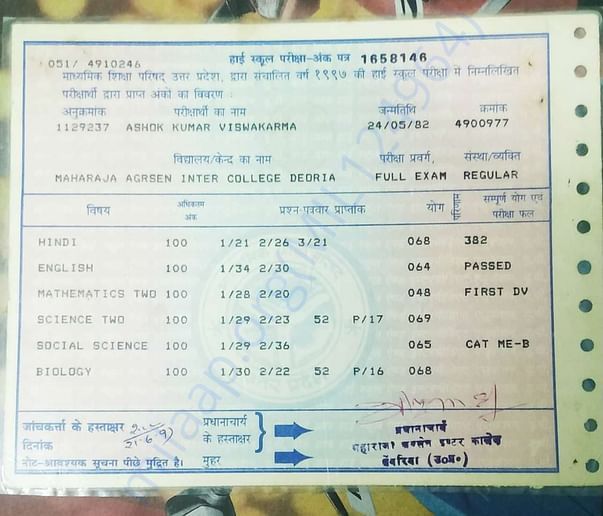 051/ 4910246 हाई स्कूल परीक्षा-अंक पत्र 1658146
माध्यमिक शिक्षा परिषद् उत्तर प्रदेश, द्वारा संचालित वर्ष १९९७ की हाई स्कूल परीक्षा में निम्नलिखित
परीक्षार्थी द्वारा प्राप्त अंकों का विवरण :
अनुक्रमांक परीक्षार्थी का नाम जन्मतिथि क्रमांक
1129237 ASHOK KUMAR VISWAKARMA 24/05/82 4900977
विद्यालय/केन्द्र का नाम परीक्षा प्रवर्ग, संस्था/व्यक्ति
MAHARAJA AGRSEN INTER COLLEGE DEORIA FULL EXAM REGULAR
विषय अधिकतम अंक प्रश्न-पत्रवार प्राप्तांक योग परिणाम सम्पूर्ण योग एवं परीक्षा फल
HINDI 100 1/21 2/26 3/21 068 382
ENGLISH 100 1/34 2/30 064 PASSED
MATHEMATICS TWO 100 1/28 2/20 048 FIRST DV
SCIENCE TWO 100 1/29 2/23 52 P/17 069
SOCIAL SCIENCE 100 1/29 2/36 065 CAT ME-B
BIOLOGY 100 1/30 2/22 52 P/16 068
जांचकर्त्ता के हस्ताक्षर प्रधानाचार्य के हस्ताक्षर
दिनांक
प्रधानाचार्य
इण्टर कालेज
नोट-आवश्यक सूचना पीछे मुद्रित है। मुहर देवरिया (उ०प्र०)